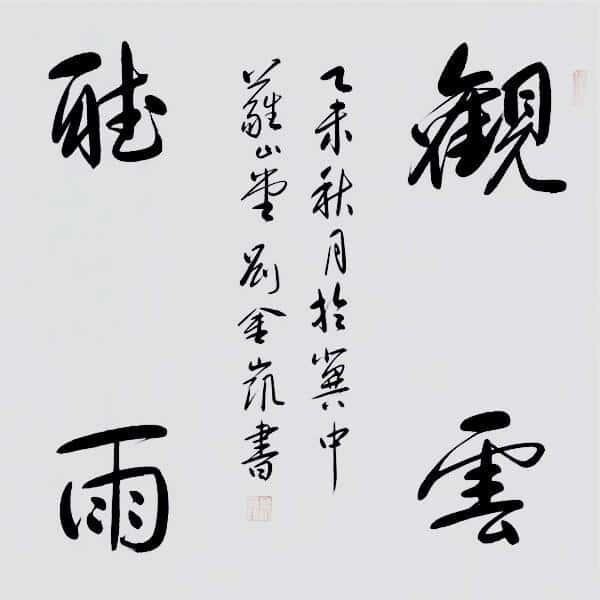 觀雲
乙未秋月於冀中
山堂劉金凱書
聽雨